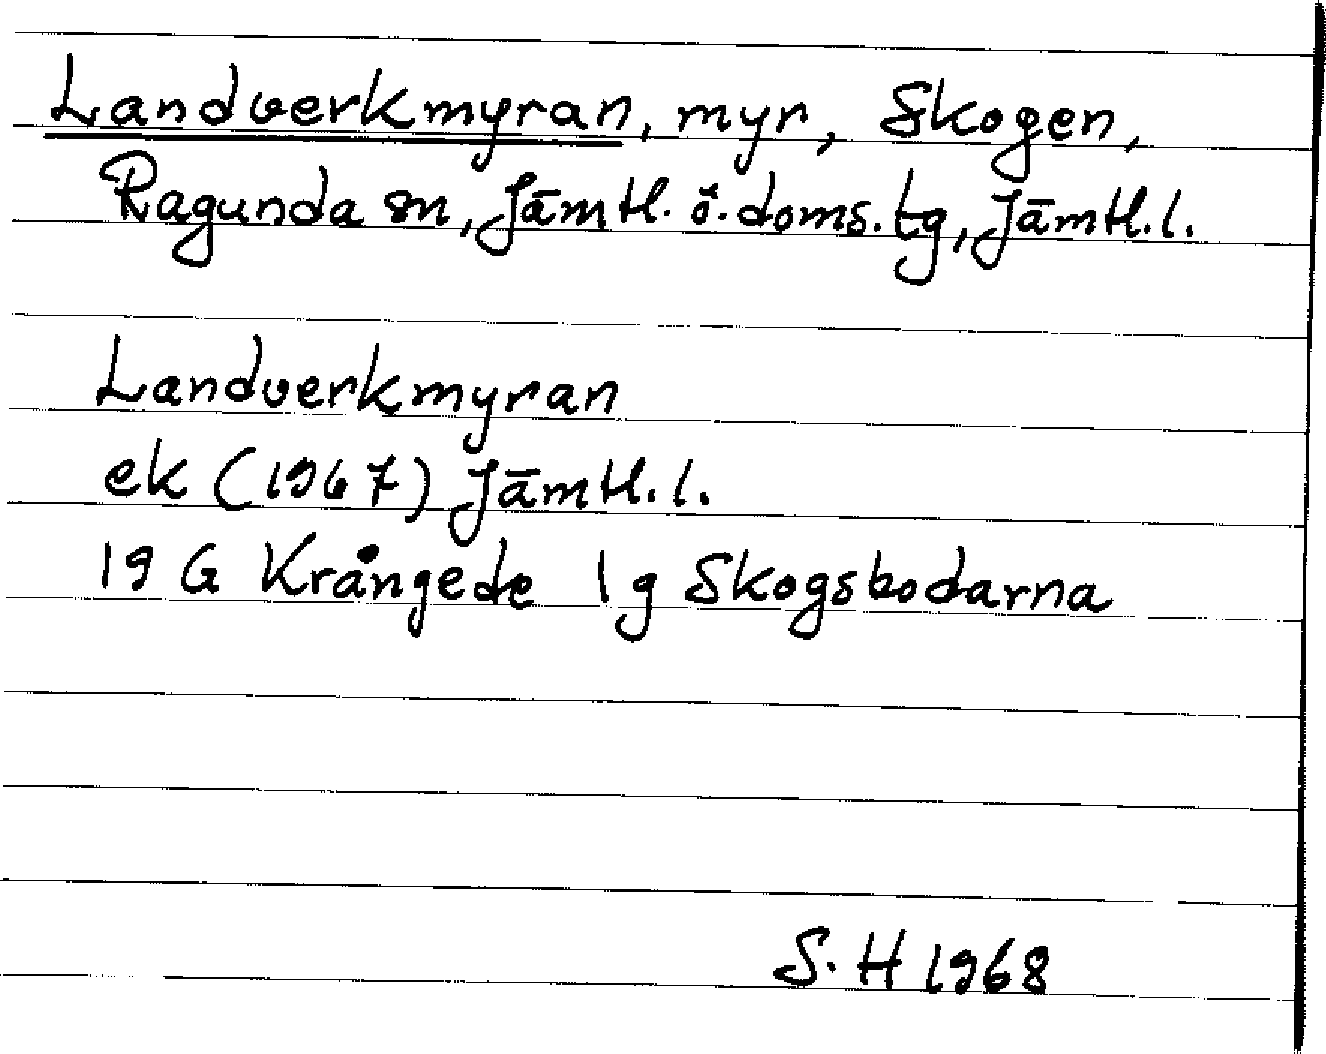 Landverkmyran, myr, Skogen,
Ragunda sn, Jämtl. ö. doms. tg, Jämtl. l.
Landverkmyran
ek (1967) Jämtl. l.
19 G Krångede 1 g Skogsbodarna
S. H 1968